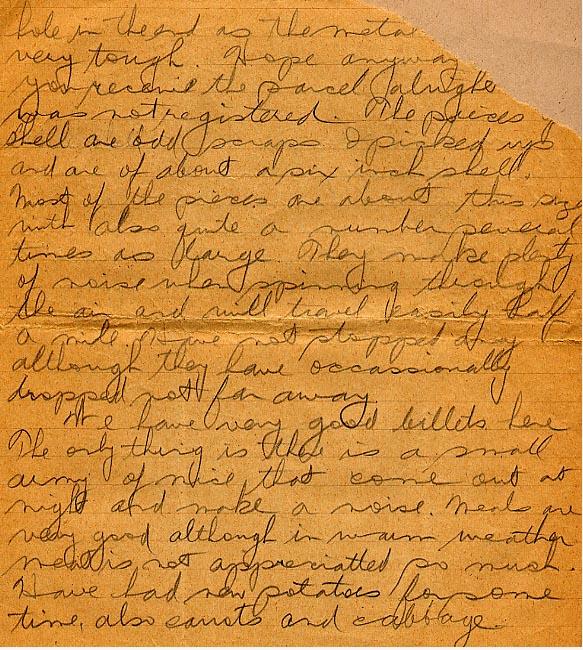 hole in the end as the meta
very tough. Hope anyway
you receive the parcel alright
was not registered. The pieces
shell are odd scraps I picked up
and are of about a six inch shell.
Most of the pieces are about this size
with also quite a number several
times as large. They make plenty
of noise when spinning through
the air and will travel easily half
a mile. Have not stopped any
although they have occassionally
dropped not far away.
We have very good billets here
The only thing is there is a small
army of mice that come out at
night and make a noise. Meals are
very good although in warm weather
meat is not appreciatted so much.
Have had new potatoes for some
time, also carrots and cabbage.